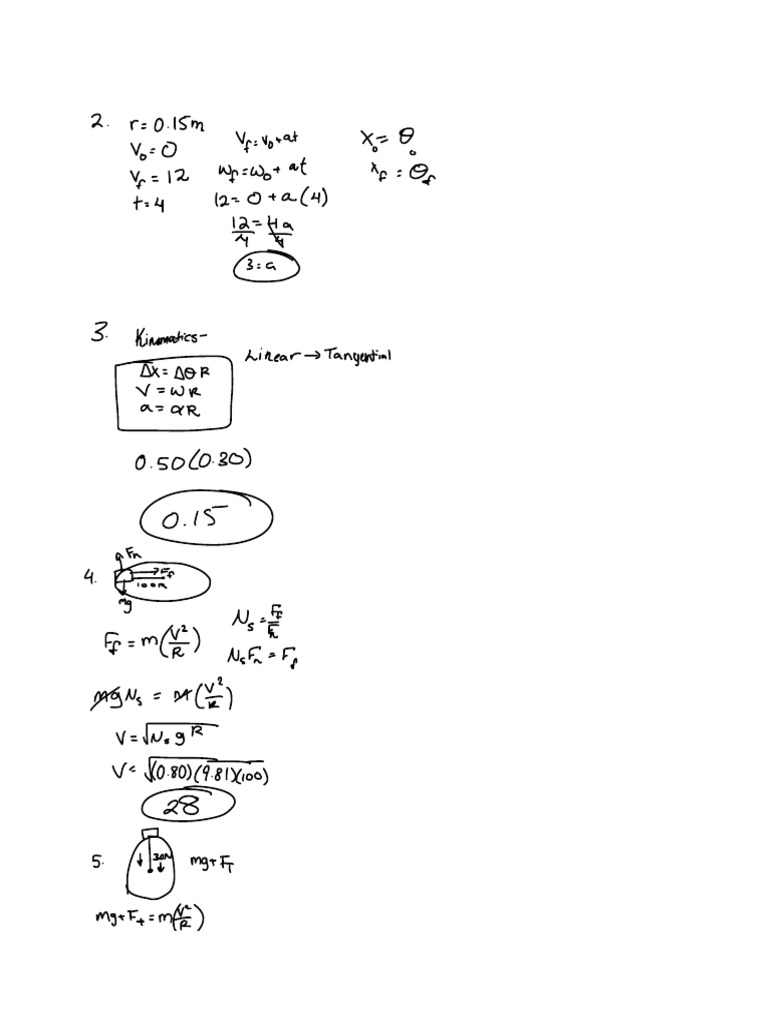 2. r = 0.15m
V₀ = 0
V_f = 12
t = 4
V_f = V₀ + at
ω_f = ω₀ + at
12 = 0 + a(4)
12/4 = 4a/4
3 = a
X₀ = θ₀
x_f = θ_f
3. Kinematics -
Linear → Tangential
Δx = Δθ R
V = ω R
a = α R
0.50(0.30)
0.15
4.
Fₙ
F_f
100m
mg
F_f = m(V²/R)
N_s = F_f/Fₙ
N_s Fₙ = F_f
mg N_s = m(V²/R)
V = √N_s g R
V = √(0.80)(9.81)(100)
28
5.
mg + F_T
mg + F_t = m(V²/R)